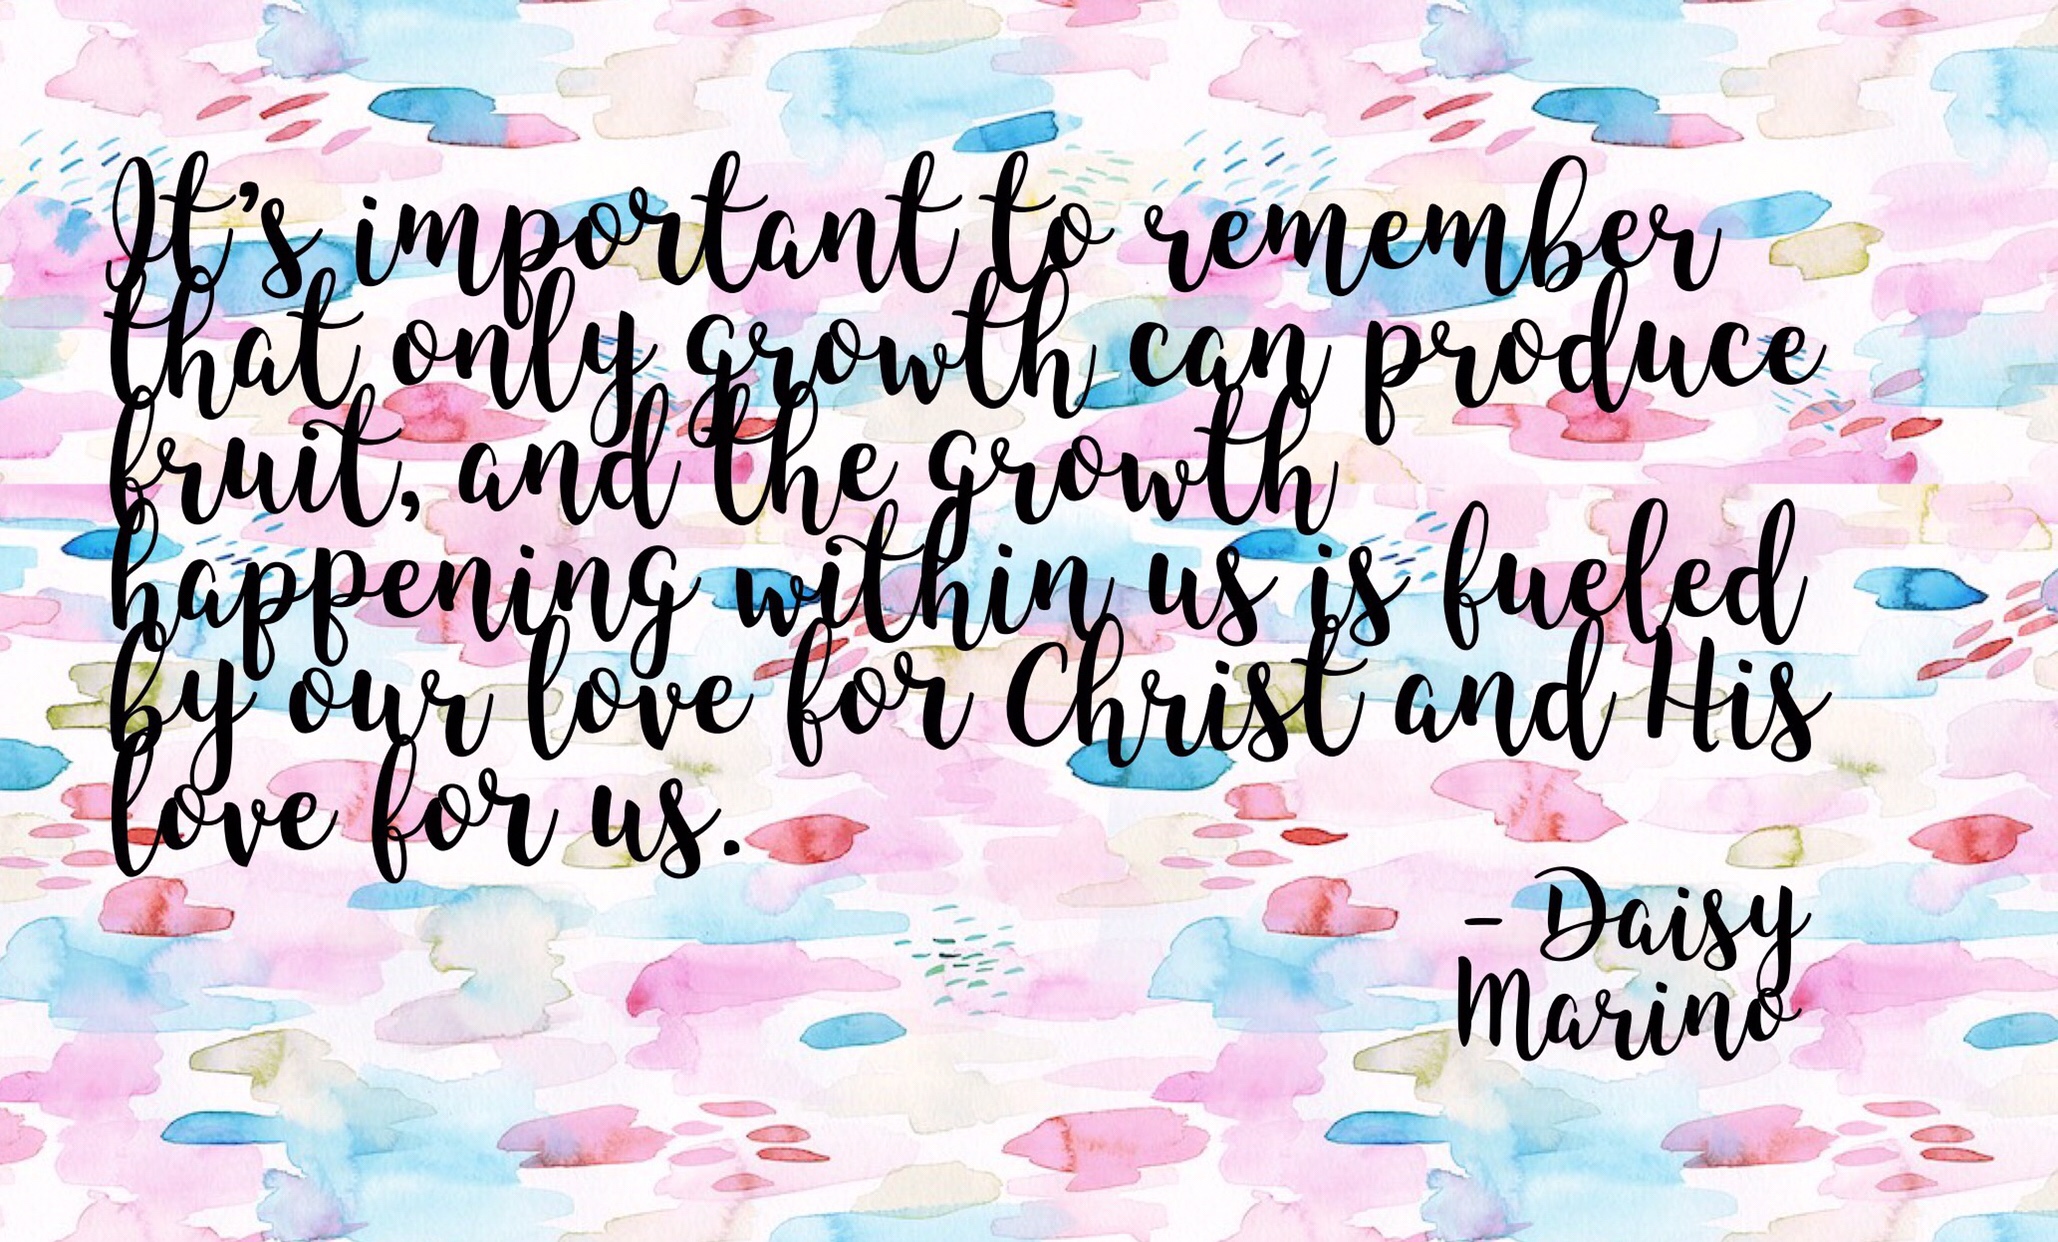 It's important to remember
that only growth can produce
fruit, and the growth
happening within us is fueled
by our love for Christ and His
love for us.
- Daisy
Marino